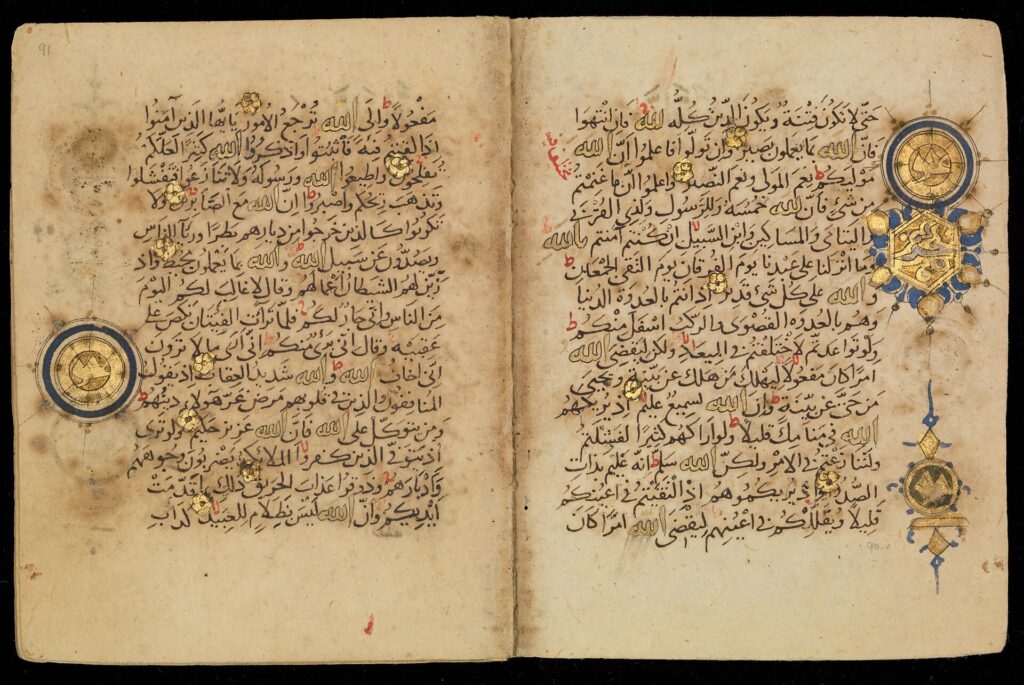 حتى لا تكون فتنة ويكون الدين كله لله فان انتهوا
فان الله بما يعملون بصير وان تولوا فاعلموا ان الله
موليكم نعم المولى ونعم النصير واعلموا انما غنمتم
من شئ فان لله خمسه وللرسول ولذي القربى
واليتامى والمساكين وابن السبيل ان كنتم آمنتم بالله
وما انزلنا على عبدنا يوم الفرقان يوم التقى الجمعان
والله على كل شئ قدير اذ انتم بالعدوة الدنيا
وهم بالعدوة القصوى والركب اسفل منكم
ولو تواعدتم لاختلفتم في الميعاد ولكن ليقضي الله
امرا كان مفعولا ليهلك من هلك عن بينة ويحيى
من حي عن بينة وان الله لسميع عليم اذ يريكهم
الله في منامك قليلا ولو اراكهم كثيرا لفشلتم
ولتنازعتم في الامر ولكن الله سلم انه عليم بذات
الصدور واذ يريكموهم اذ التقيتم في اعينكم
قليلا ويقللكم في اعينهم ليقضي الله امرا كان
91
مفعولا والى الله ترجع الامور يايها الذين آمنوا
اذا لقيتم فئة فاثبتوا واذكروا الله كثيرا لعلكم
تفلحون واطيعوا الله ورسوله ولا تنازعوا فتفشلوا
وتذهب ريحكم واصبروا ان الله مع الصابرين ولا
تكونوا كالذين خرجوا من ديارهم بطرا ورئاء الناس
ويصدون عن سبيل الله والله بما يعملون محيط واذ
زين لهم الشيطان اعمالهم وقال لا غالب لكم اليوم
من الناس واني جار لكم فلما تراءت الفئتان نكص على
عقبيه وقال اني برئ منكم اني ارى ما لا ترون
اني اخاف الله والله شديد العقاب اذ يقول
المنافقون والذين في قلوبهم مرض غر هؤلاء دينهم
ومن يتوكل على الله فان الله عزيز حكيم ولو ترى
اذ يتوفى الذين كفروا الملائكة يضربون وجوههم
وادبارهم وذوقوا عذاب الحريق ذلك بما قدمت
ايديكم وان الله ليس بظلام للعبيد كداب